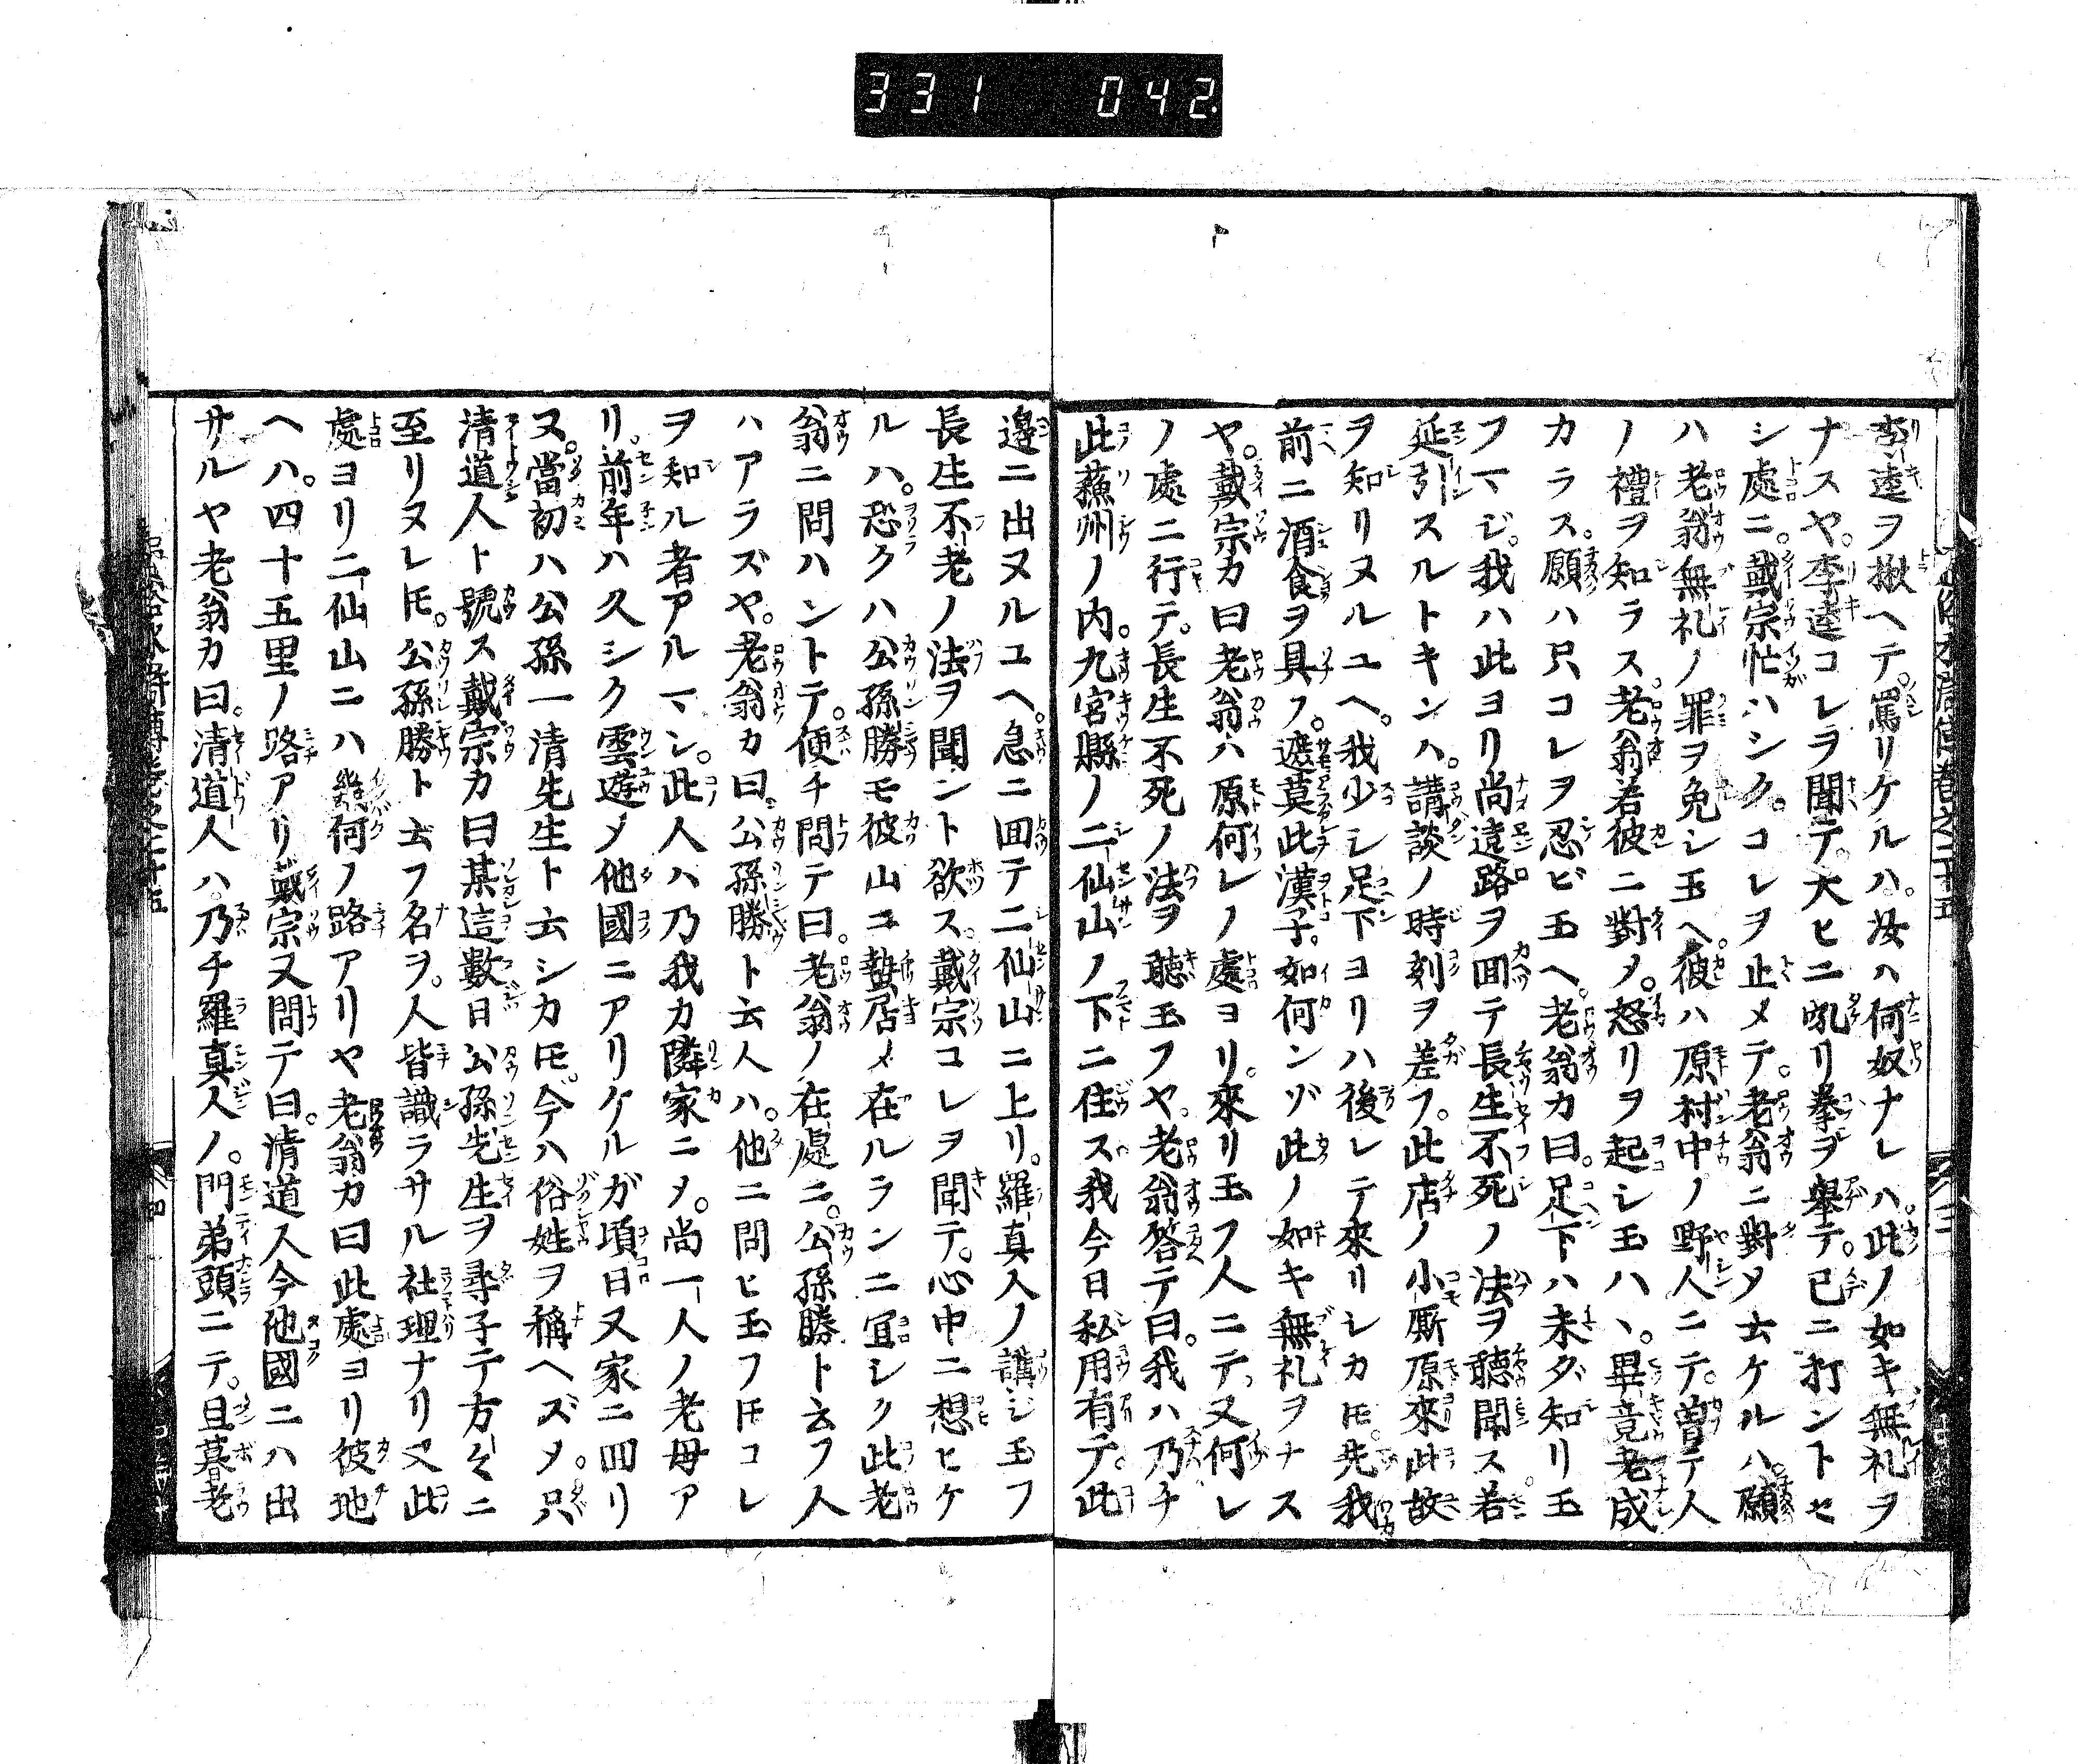 331 042
李逵ヲ揪ヘテ。罵リケルハ。汝ハ何奴ナレハ。此ノ如キ無礼ヲ
ナスヤ。李逵コレヲ聞テ。大ヒニ吼リ拳ヲ舉テ。已ニ打ントセ
シ處ニ。戴宗忙ハシク。コレヲ止メテ。老翁ニ對メ云ケルハ。願
ハ老翁無礼ノ罪ヲ免シ玉ヘ。彼ハ原村中ノ野人ニテ。曽テ人
ノ禮ヲ知ラス。老翁若彼ニ對メ。怒リヲ起シ玉ハヽ。畢竟老成
カラス。願ハ只コレヲ忍ビ玉ヘ。老翁カ曰。足下ハ未ダ知リ玉
フマジ。我ハ此ヨリ尚遠路ヲ囬テ長生不死ノ法ヲ聽聞ス若
延引スルトキンハ。講談ノ時刻ヲ差フ。此店ノ小厮原來此故
ヲ知リヌルユヘ。我少シ足下ヨリハ後レテ來リシカ𪜈。先我
前ニ酒食ヲ具フ。遮莫此漢子。如何ンゾ此ノ如キ無礼ヲナス
ヤ。戴宗カ曰老翁ハ原何レノ處ヨリ。來リ玉フ人ニテ。又何レ
ノ處ニ行テ。長生不死ノ法ヲ聽玉フヤ。老翁答テ曰。我ハ乃チ
此蘓州ノ内。九宮縣ノ二仙山ノ下ニ住ス我今日私用有テ。此
邉ニ出ヌルユヘ。急ニ囬テ二仙山ニ上リ。羅真人ノ講ジ玉フ
長生不老ノ法ヲ聞ント欲ス。戴宗コレヲ聞テ。心中ニ想ヒケ
ルハ。恐クハ公孫勝モ彼山ニ蟄居メ在ルランニ宜シク此老
翁ニ問ハントテ。便チ問テ曰。老翁ノ在處ニ。公孫勝ト云フ人
ハアラズヤ。老翁カ曰。公孫勝ト云人ハ。他ニ問ヒ玉フ𪜈コレ
ヲ知ル者アルマシ。此人ハ乃我カ隣家ニメ。尚一人ノ老母ア
リ。前年ハ久シク雲遊メ他國ニアリケルガ頃日又家ニ囬リ
ヌ。當初ハ公孫一清先生ト云シカ𪜈。今ハ俗姓ヲ稱ヘズメ。只
清道人ト號ス戴宗カ曰某這數日公孫先生ヲ尋子テ方々ニ
至リヌレ𪜈。公孫勝ト云フ名ヲ。人皆識ラサル社理ナリ又此
處ヨリ二仙山ニハ幾何ノ路アリヤ老翁カ曰此處ヨリ彼地
ヘハ。四十五里ノ路アリ戴宗又問テ曰。清道人今他國ニハ出
サルヤ老翁カ曰。清道人ハ。乃チ羅真人ノ。門弟頭ニテ。且暮老